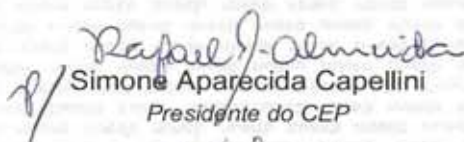 Rafael J. Almeida
P/ Simone Aparecida Capellini
Presidente do CEP